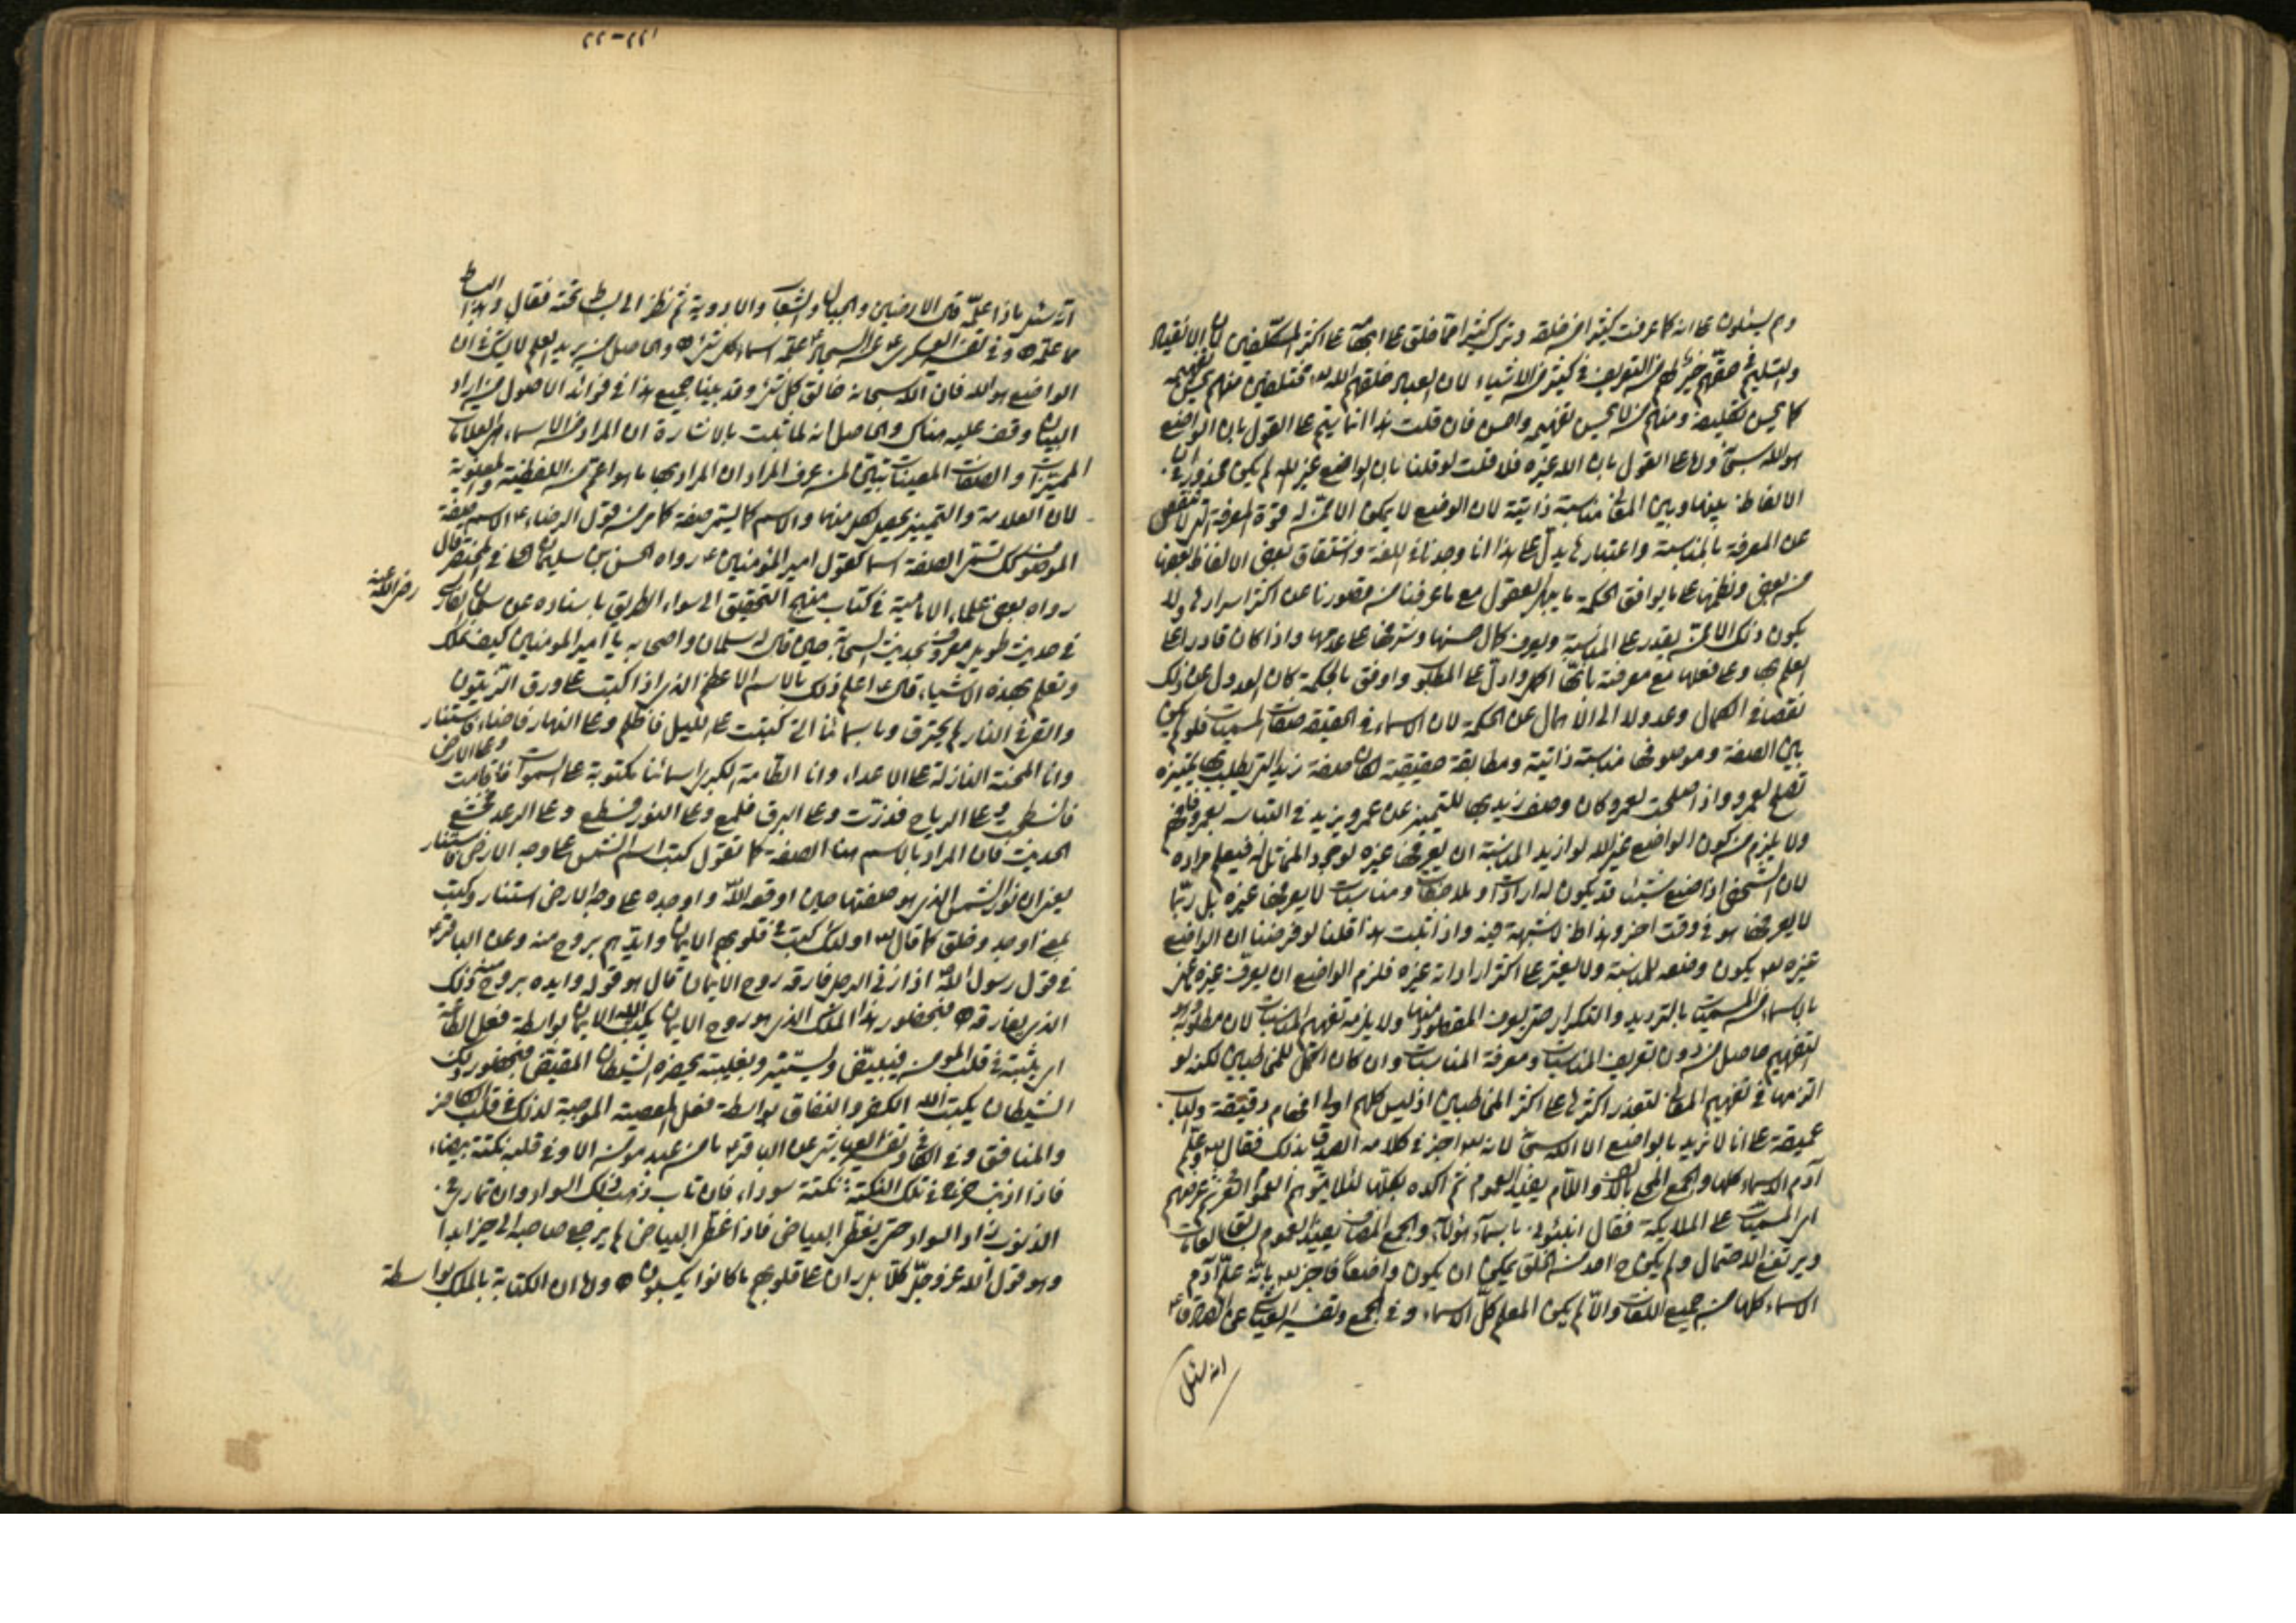 وهم يسئلون على انه كما عرفت كثيرا من خلقه وترك كثيرا مما خلق على ابهامه على اكثر المكلفين لان الانقياد
والتسليم في حقهم خير لهم من التعريف في كثير من الاشياء لان العباد خلقهم الله تعالى مختلفين منهم من يحسن تفهيمه
كما يحسن تكليفه ومنهم من لا يحسن تفهيمه واحسن فان قلت هذا انما يتم على القول بان الواضع
هو الله سبحانه ولها على القول بان الله غيره فلا قلت لو قلنا بان الواضع غير الله لم يكن محذور لان
الالفاظ بينها وبين المعاني مناسبة ذاتية لان الوضع لا يمكن الا ممن له قوة المعرفة التي لا تنقص
عن المعرفة بالمناسبة واعتبارها يدل على هذا انا وجدنا في اللغة واشتقاق بعض الالفاظ بعضها
من بعض ونظمها على ما يوافق الحكمة ما يبهر العقول مع ما عرفنا من قصورنا عن اكثر اسرارها ولا
يكون ذلك الا ممن يقدر على المناسبة ويعرف كمال حسنها وشرفها على عدمها واذا كان قادرا على
العلم بها وعلى فعلها مع معرفته بانها اكمل وادل على المطلوب واوفق بالحكمة كان العدول عن ذلك
نقصا في الكمال وعدولا الى الاهمال عن الحكمة لان الاسماء في الحقيقة صفات المسميات فلو لم يكن
بين الصفة وموصوفها مناسبة ذاتية ومطابقة حقيقية لكان صفة زيد التي يطلب بها تمييزه
تصلح لعمرو واذا صلحت لعمرو كان وصف زيد بها للتمييز عن عمرو يزيد في التباسه بعمرو فافهم
ولا يلزم من كون الواضع غير الله لو اريد المناسبة ان يعرفها غيره لوجود المماثل له فيعلم مراده
لان الشخص اذا صنع شيئا قد يكون له ارادات وملاحظات ومناسبات لا يعرفها غيره بل ربما
لا يعرفها هو في وقت اخر وهذا ظاهر لا شبهة فيه واذا ثبت هذا قلنا لو فرضنا ان الواضع
غيره تعالى يكون وضعه للمناسبة ولا يعثر على اكثر اراداته غيره فلزم الواضع ان يعرف غيره تميز
بالاسماء من المسميات بالترديد والتكرار حتى يعرف المقصود منها ولا يلزمه تفهيم المناسبات لان مطلوبه وهو
التفهيم حاصل من دون تعريف المناسبات ومعرفة المناسبات وان كان اكمل للمخاطبين لكنه لو
التزمها في تفهيم المعاني لتعذر اكثرها على اكثر المخاطبين اذ ليس كلهم اولي افهام دقيقة والباب
عميقة على انا لا نريد بالواضع الا الله سبحانه لانه تعالى اخبر في كلامه الصدق بذلك فقال تعالى وعلم
آدم الاسماء كلها والجمع المحلى بالالف واللام يفيد العموم ثم اكده بكلها لئلا يتوهم العموم العرفي ثم عرضهم
اي المسميات على الملائكة فقال انبئوني باسماء هؤلاء والجمع المضاف يفيد العموم
ويرتفع الاحتمال ولم يكن ح احد من الخلق يمكن ان يكون واضعا فاخبر تعالى بانه علم آدم
الاسماء كلها من جميع اللغات والا لم يكن المعلم كل الاسماء وفي المجمع وتفسير العياشي عن الصادق ع
انه سئل
٢٢-٢٢١
انه سئل ماذا علمه قال الارضين والجبال والشعاب والاودية ثم نظر الى بساط تحته فقال وهذا البساط
مما علمه وفي تفسير العسكري ع عن السجاد ع علمه اسماء كل شئ والحاصل من يريد العلم لا يشك في ان
الواضع هو الله فان الله سبحانه خالق كل شئ وقد بينا جميع هذا في فوائد الاصول من اراد
البيان وقف عليه هناك والحاصل انه لما ثبت بالاشارة ان المراد من الاسماء هو العلامات
المميزات والصفات المعينات تبين لمن عرف المراد ان المراد بها ما هو اعم من اللفظية والمعنوية
لان العلامة والتمييز يحصل لكل منهما والاسم كما يسمى صفة كما مر من قول الرضا ع الاسم صفة
لموصوف كذلك تسمى الصفة اسما كقول امير المؤمنين ع رواه الحسن بن سليمان الحلي في المختصر قال
رواه بعض علماء الامامية في كتاب منهج التحقيق الى سواء الطريق باسناده عن سلمان الفارسي
رضي الله عنه
في حديث طويل معروف بحديث السحابة حين قال له سلمان واصحابه يا امير المؤمنين كيف تملك
وتعلم بهذه الاشياء قال ع اعلم ذلك بالاسم الاعظم الذي اذا كتب على ورق الزيتون
والقي في النار لم يحترق وباسمائنا التي كتبت على الليل فاظلم وعلى النهار فاضاء واستنار
وانا المحنة النازلة على الاعداء وانا الطامة الكبرى اسمائنا مكتوبة على السموات فاقامت وعلى الارض
فانسطحت وعلى الرياح فذرت وعلى البرق فلمع وعلى النور فسطع وعلى الرعد فخشع
الحديث فان المراد بالاسم هنا الصفة كما تقول كتب اسم الشمس على وجه الارض فاستنار
يعني ان نور الشمس الذي هو صفتها حين اوقعه الله واوجده على وجه الارض استنار وكتب
بمعنى اوجد وخلق كما قال تعالى اولئك كتب في قلوبهم الايمان وايدهم بروح منه وعن الباقر ع
في قول رسول الله ص اذا زنى الرجل فارقه روح الايمان قال هو قوله وايدهم بروح منه ذلك
الذي يفارقه فبحضور هذا الملك الذي هو روح الايمان يكتب الله الايمان بواسطة فعل الطاعة
اي يثبته في قلب المؤمن فيبيض ويستنير وبغيبته يحضره الشيطان المقيض فبحضور ذلك
الشيطان يكتب الله الكفر والنفاق بواسطة فعل المعصية الموجبة لذلك في قلب الكافر
والمنافق وفي الكافي وتفسير العياشي عن الباقر ع ما من عبد مؤمن الا وفي قلبه نكتة بيضاء
فاذا اذنب خرج في تلك النكتة نكتة سوداء فان تاب ذهب ذلك السواد وان تمادى في
الذنوب زاد السواد حتى يغطي البياض فاذا غطى البياض لم يرجع صاحبه الى خير ابدا
وهو قول الله عز وجل كلا بل ران على قلوبهم ما كانوا يكسبون ولها ان الكتابة بالملك بواسطة